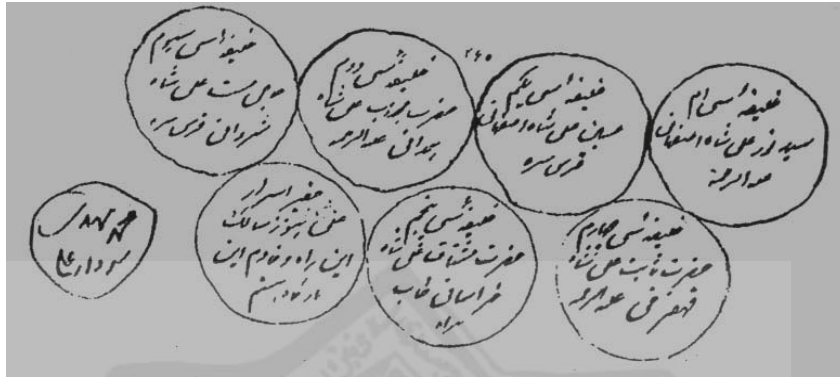 خلیفه اسی ام
سید نور علی شاه اصفهانی
علیه الرحمة
خلیفه اسی یکم
حسین علی شاه اصفهانی
قدس سره
۲۶۵
خلیفه اسی دوم
حضرت مجذوب علی شاه
همدانی علیه الرحمه
خلیفه اسی سیوم
حاجی مست علی شاه
شیروانی قدس سره
خلیفه اسی چهارم
حضرت ثابت علی شاه
قهفرخی علیه الرحمه
خلیفه اسی پنجم
حضرت مشتاق علی شاه
خراسانی طاب
ثراه
حقیر اسرار
علی سالک
این راه و خادم این